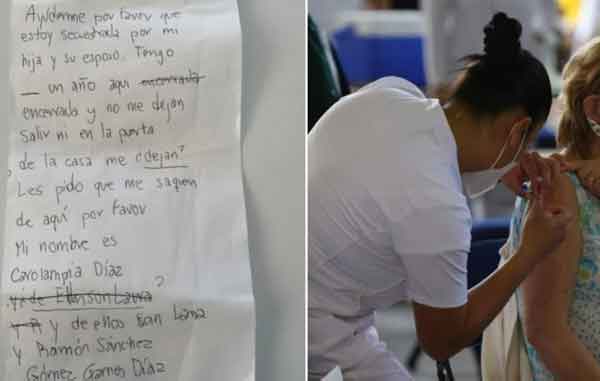 Ayúdenme por favor que
estoy secuestrada por mi
hija y su esposo. Tengo
— un año aqui encerrada
encerrada y no me dejan
salir ni en la puerta
de la casa me ¿dejan?
Les pido que me saquen
de aquí por favor
Mi nombre es
Carolampia Díaz
y de ellos son
y Ramón Sánchez
Gómez Díaz